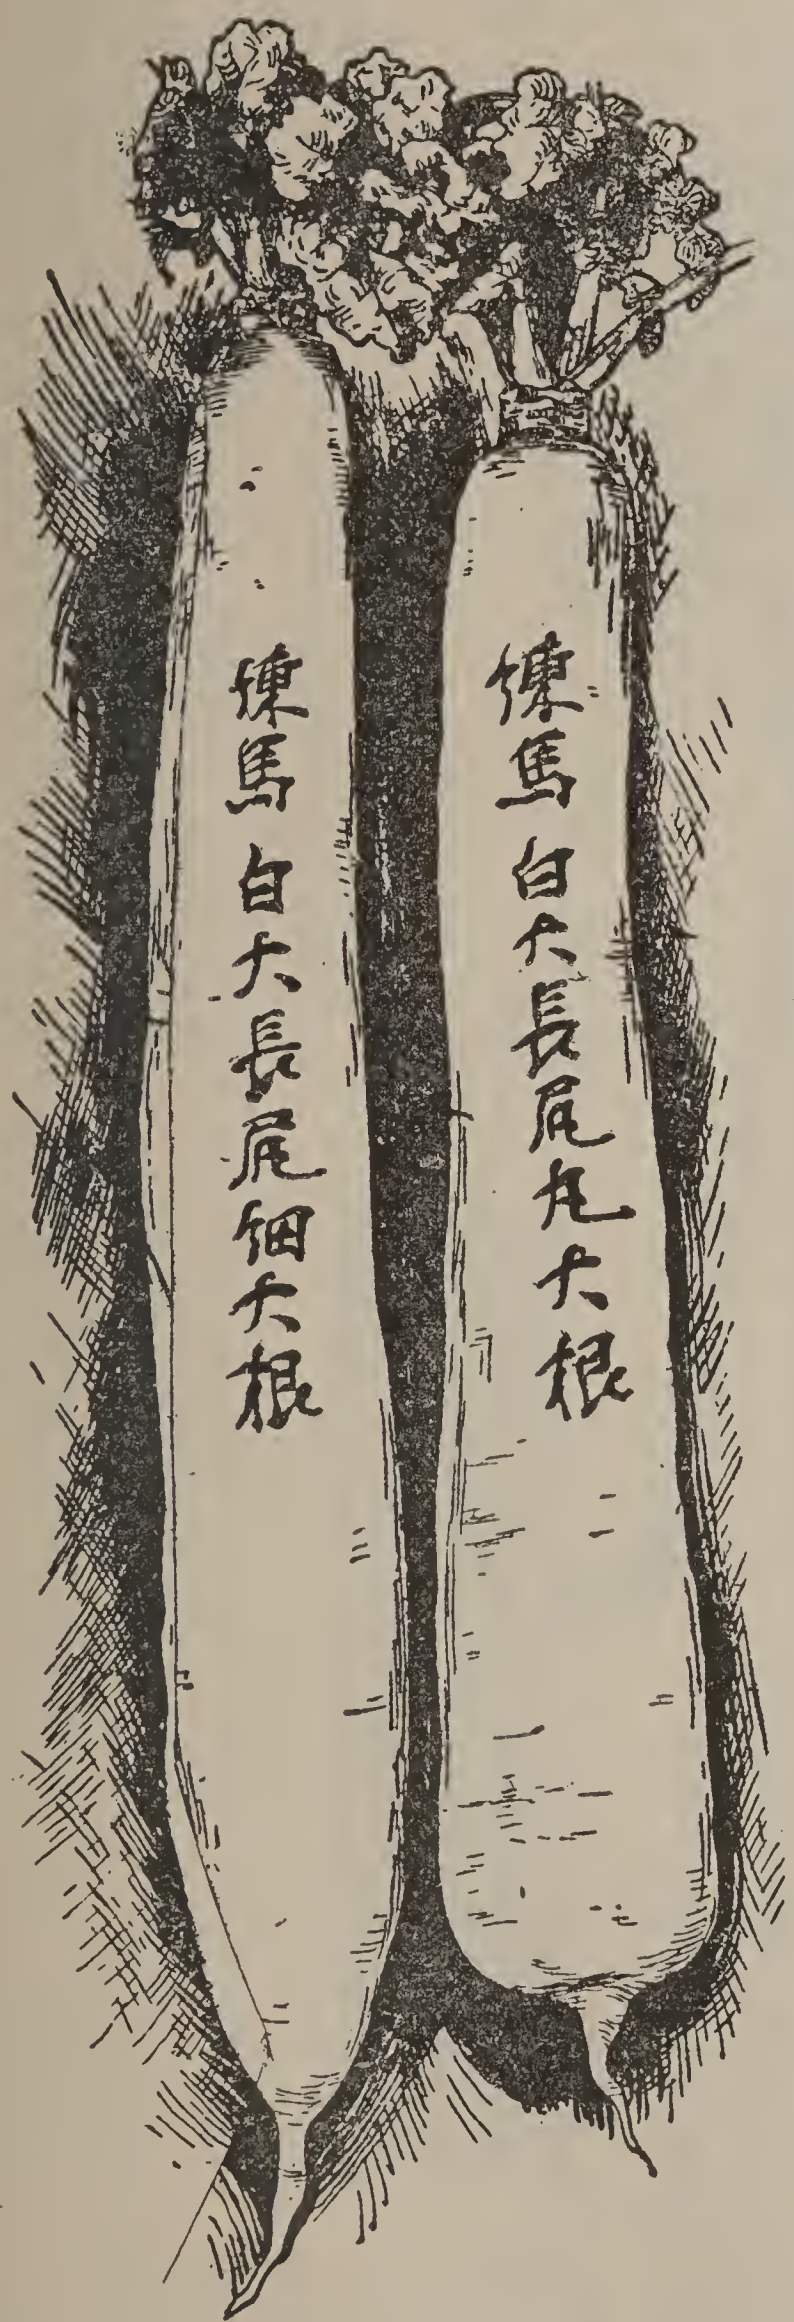 練馬白大長尻丸大根
練馬白大長尻細大根